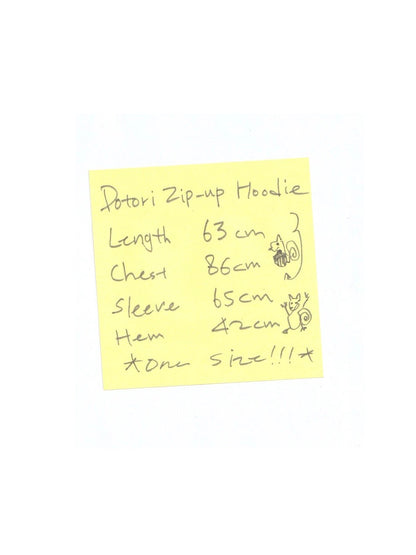 Dotori Zip-up Hoodie
Length 63cm
Chest 86cm
Sleeve 65cm
Hem 42cm
*One size!!!*